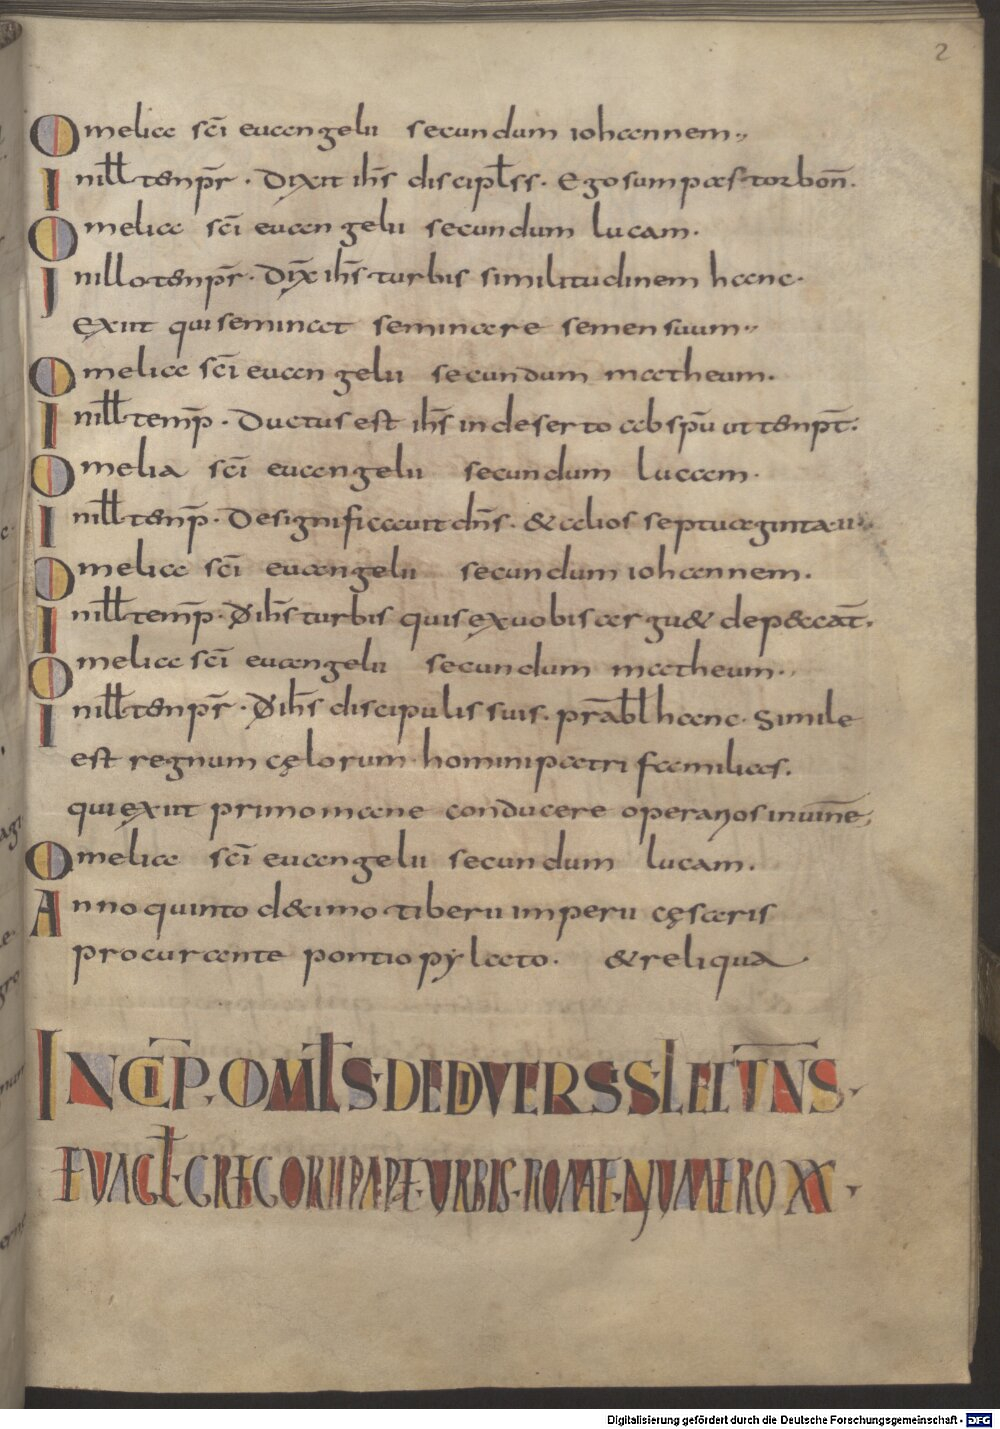 2
Omelia sc̄i euangelii secundum iohannem
In illl temp̄r. Dixit ih̄s discipl̄ ss. Ego sum pastor bon̄.
Omelia sc̄i euangelii secundum lucam.
In illo temp̄r. Dix̄ ih̄s turbis similitudinem hanc.
exiit qui seminat seminare semen suum
Omelia sc̄i euangelii secundum matheum.
In illl temp̄. Ductus est ih̄s in deserto ab sp̄u ut tempt̄.
Omelia sc̄i euangelii secundum lucam.
In illl temp̄. Designificauit dn̄s. & alios septuaginta ii
Omelia sc̄i euangelii secundum iohannem.
In illl temp̄. Đ ih̄s turbis quis ex uobis argu& de peccat̄.
Omelia sc̄i euangelii secundum matheum.
In illl temp̄r. Đ ih̄s discipulis suis. parābl hanc. Simile
est regnum cęlorum homini patri familias.
qui exiit primo mane conducere operarios in uin̄e
Omelia sc̄i euangelii secundum lucam.
Anno quinto decimo tiberii imperii cęsaris
procurante pontio pylato. & reliqua.
INCIP̄. OML̄S DE DIVERSS LECT̄NS.
EVAGL̄ GREGORII PAPE URBIS ROMAE NUMERO XX.
Digitalisierung gefördert durch die Deutsche Forschungsgemeinschaft - DFG